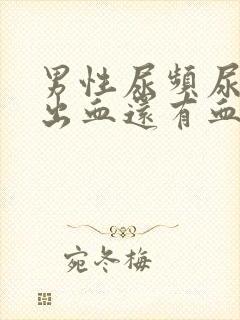 男性尿頻尿
出血還有血
宛冬梅